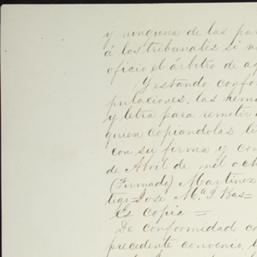 y ninguna de las par
á los tribunales si n
oficio el árbitro de ag
Y estando confor
pulaciones, las hem
y letra para remitir
quien copiandolas li
con su firma y con
de Abril de mil och
(Firmado) Martinez
tigo=José Mª. Bas=
Es copia=
De conformidad co
precedente convenio, l